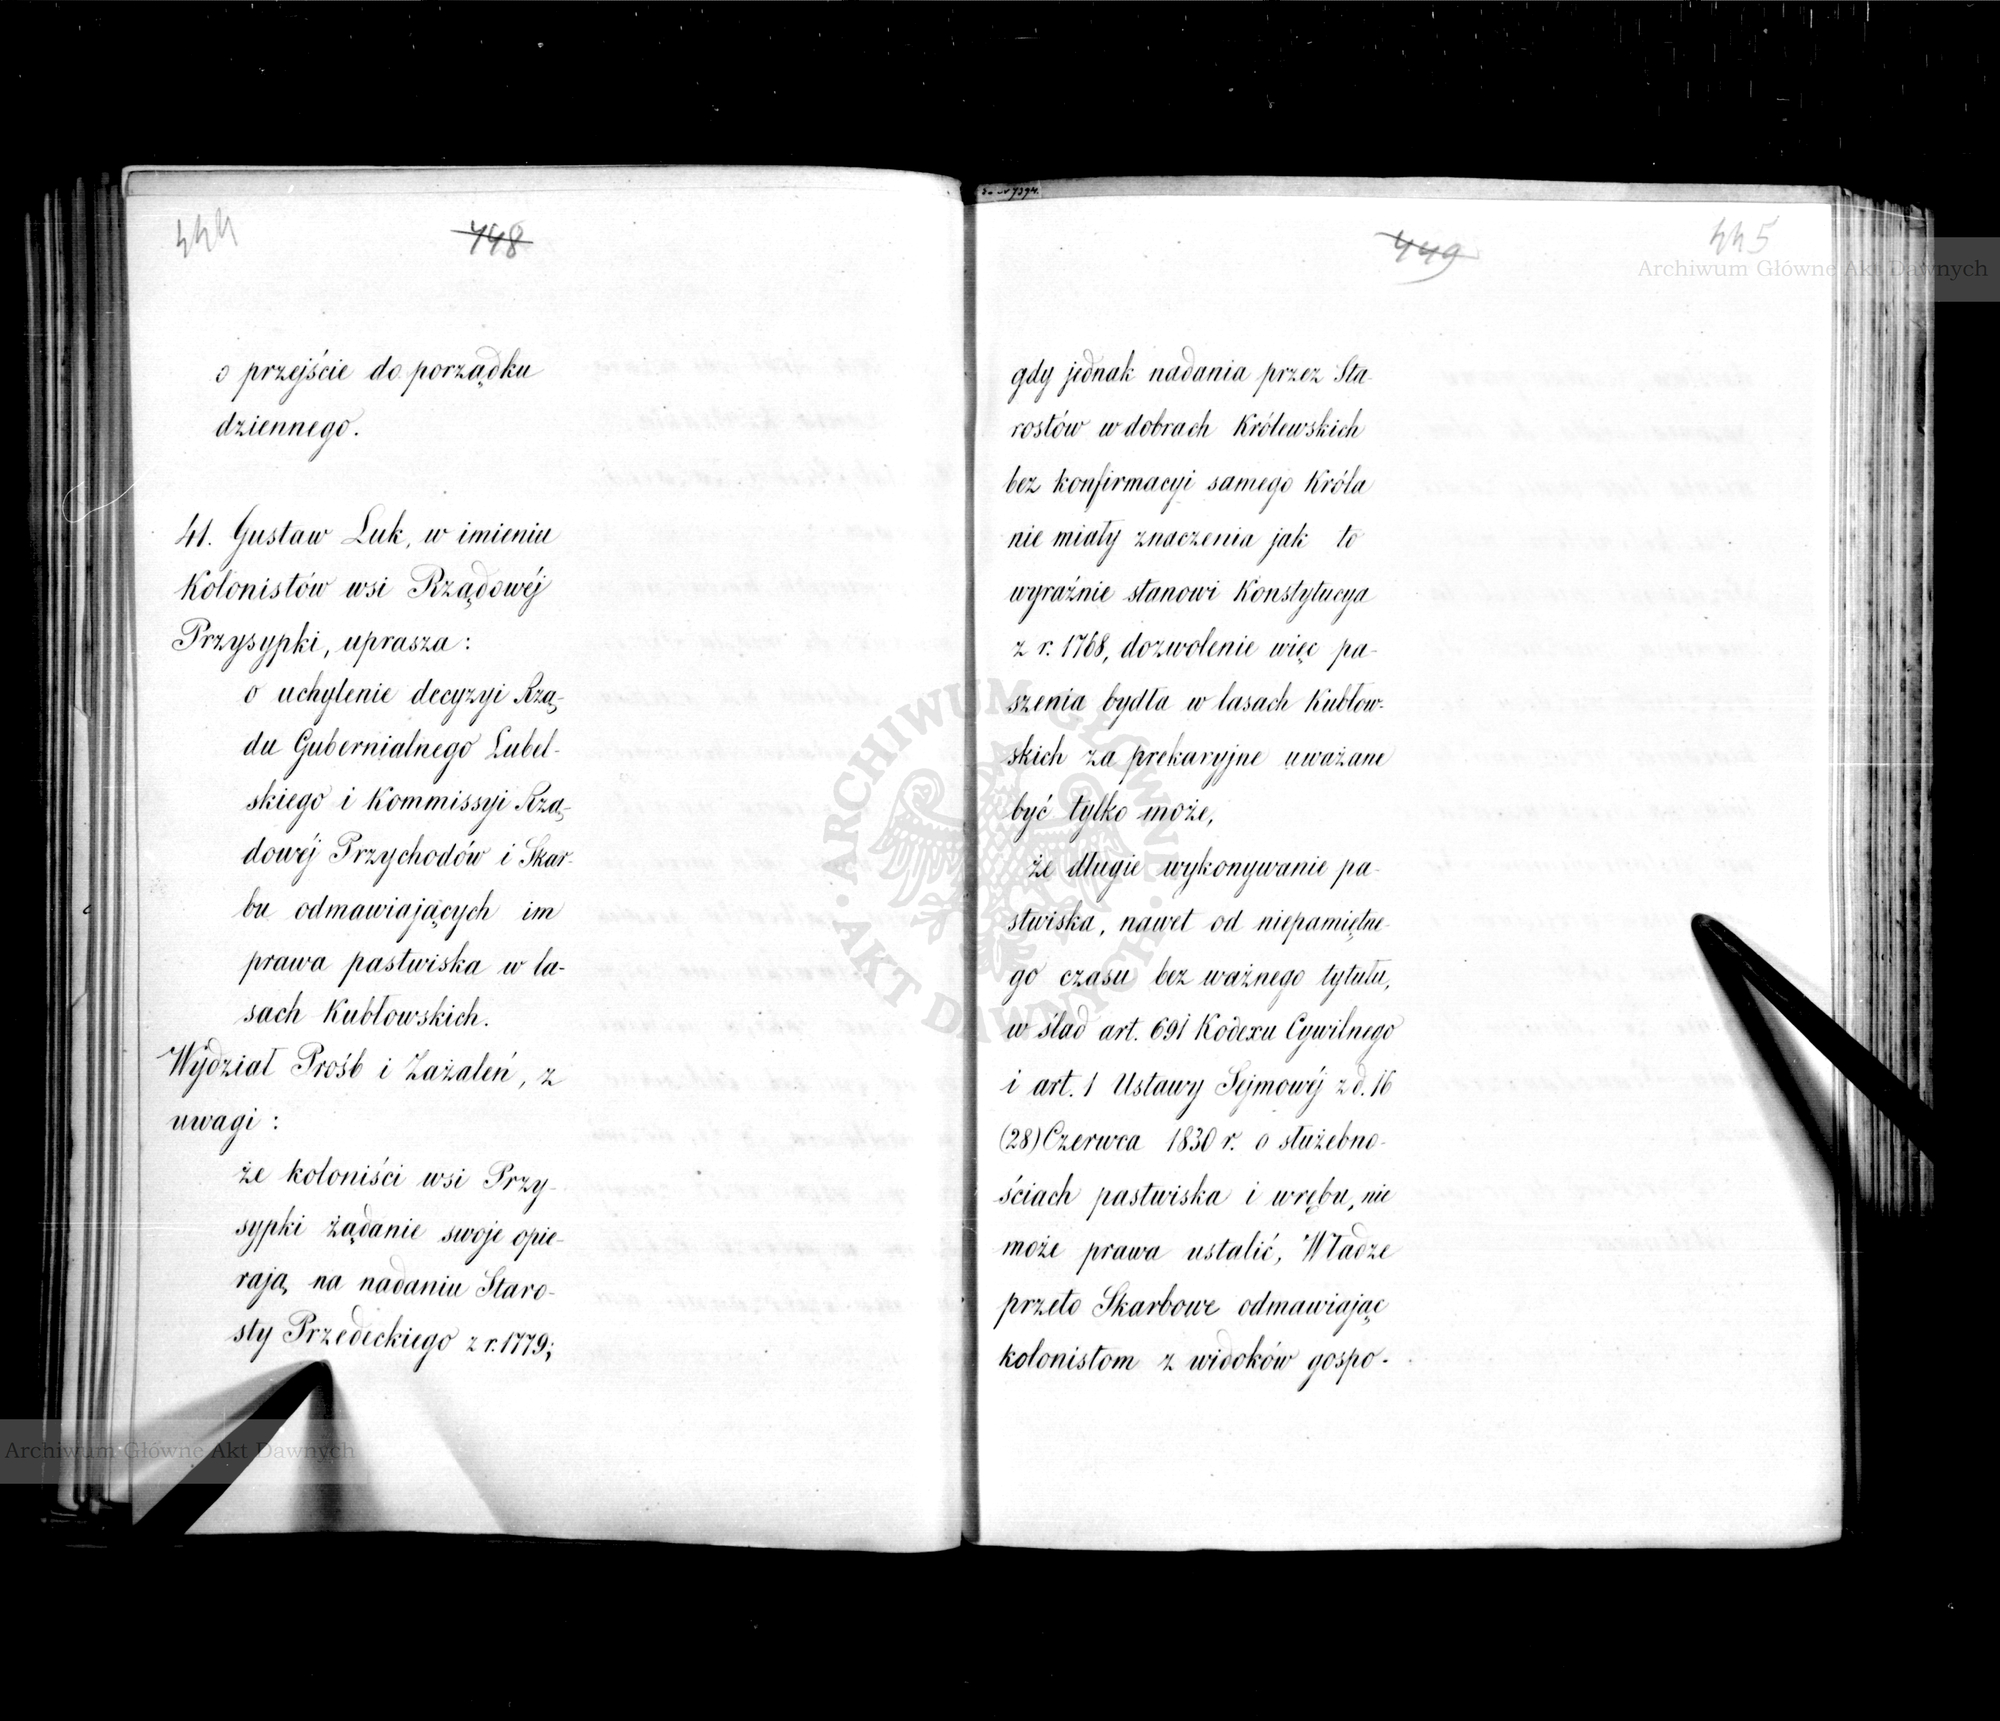 444
448
o przejście do porządku
dziennego.
41. Gustaw Luk, w imieniu
Kolonistów wsi Rządowéj
Przysypki, uprasza:
o uchylenie decyzyi Rzą-
du Gubernialnego Lubel-
skiego i Kommissyi Rzą-
dowéj Przychodów i Skar-
bu odmawiających im
prawa pastwiska w la-
sach Kubłowskich.
Wydział Prośb i Zażaleń, z
uwagi:
że koloniści wsi Przy-
sypki żądanie swoje opie-
rają na nadaniu Staro-
sty Przedeckiego z r. 1779;
449
445
gdy jednak nadania przez Sta-
rostów w dobrach Królewskich
bez konfirmacyi samego Króla
nie miały znaczenia jak to
wyraźnie stanowi Konstytucya
z r. 1768, dozwolenie więc pa-
szenia bydła w lasach Kubłow-
skich za prekaryjne uważane
być tylko może,
że długie wykonywanie pa-
stwiska, nawet od niepamiętne-
go czasu bez ważnego tytułu,
w ślad art. 691 Kodexu Cywilnego
i art. 1 Ustawy Sejmowéj z d. 16
(28) Czerwca 1830 r. o służebno-
ściach pastwiska i wrębu, nie
może prawa ustalić, Władze
przeto Skarbowe odmawiając
kolonistom z widoków gospo-
Archiwum Główne Akt Dawnych
Archiwum Główne Akt Dawnych
ARCHIWUM GŁÓWNE AKT DAWNYCH